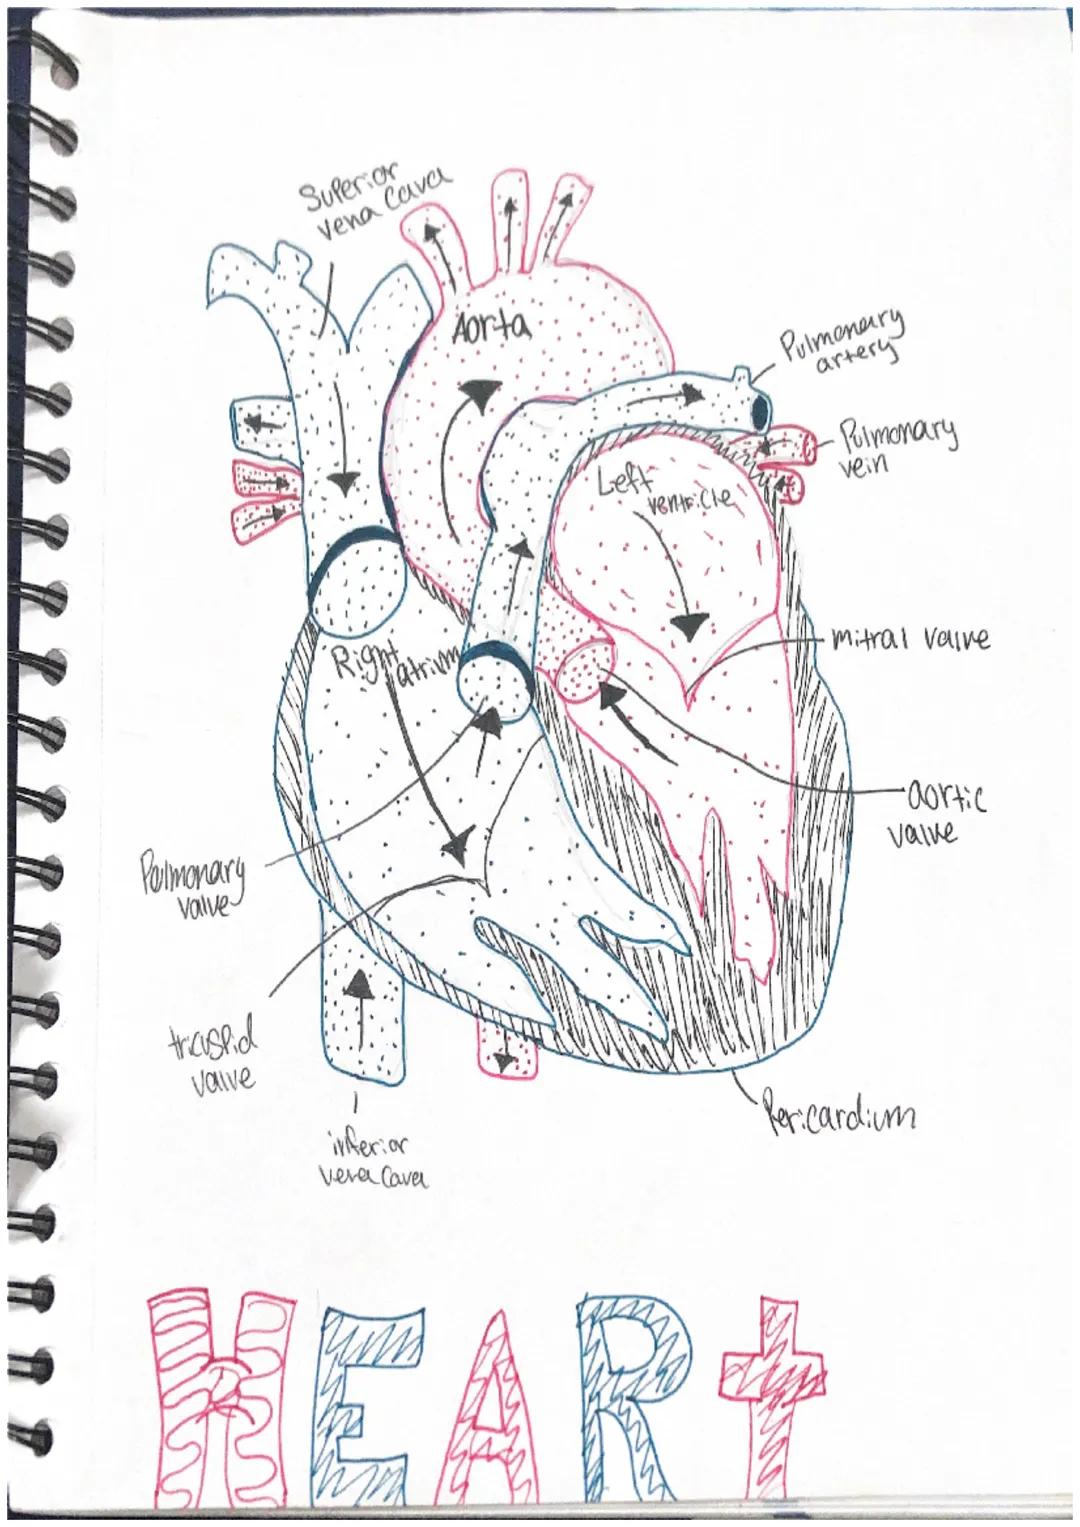 Superior
vena Cava
Aorta
Pulmonary
artery
Pulmonary
vein
Left
ventricle
mitral valve
Right
atrium
aortic
valve
Pulmonary
valve
tricuspid
valve
Pericardium
inferior
vena Cava
HEARt